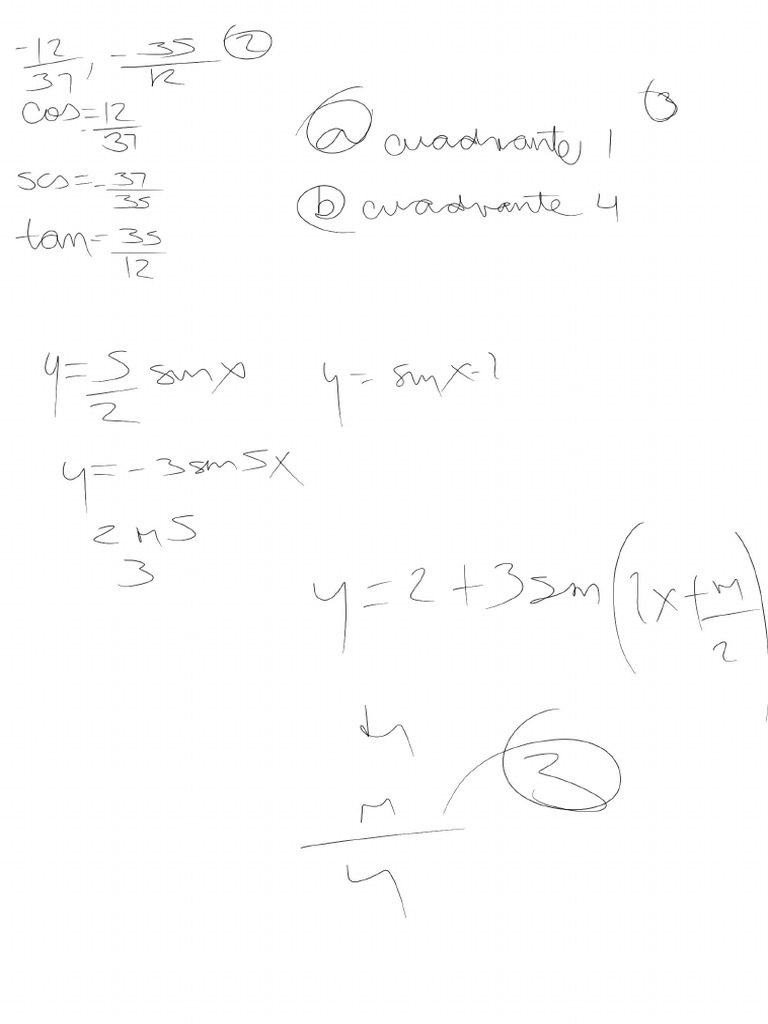 -12/37, -35/12 ②
cos=-12/37
scs=-37/35
tan=35/12
3
ⓐ cuadrante 1
ⓑ cuadrante 4
y=5/2 sinx
y=sinx-2
y=-3sin5x
2π5
3
y=2+3sin(2x+π/2)
π
4
3